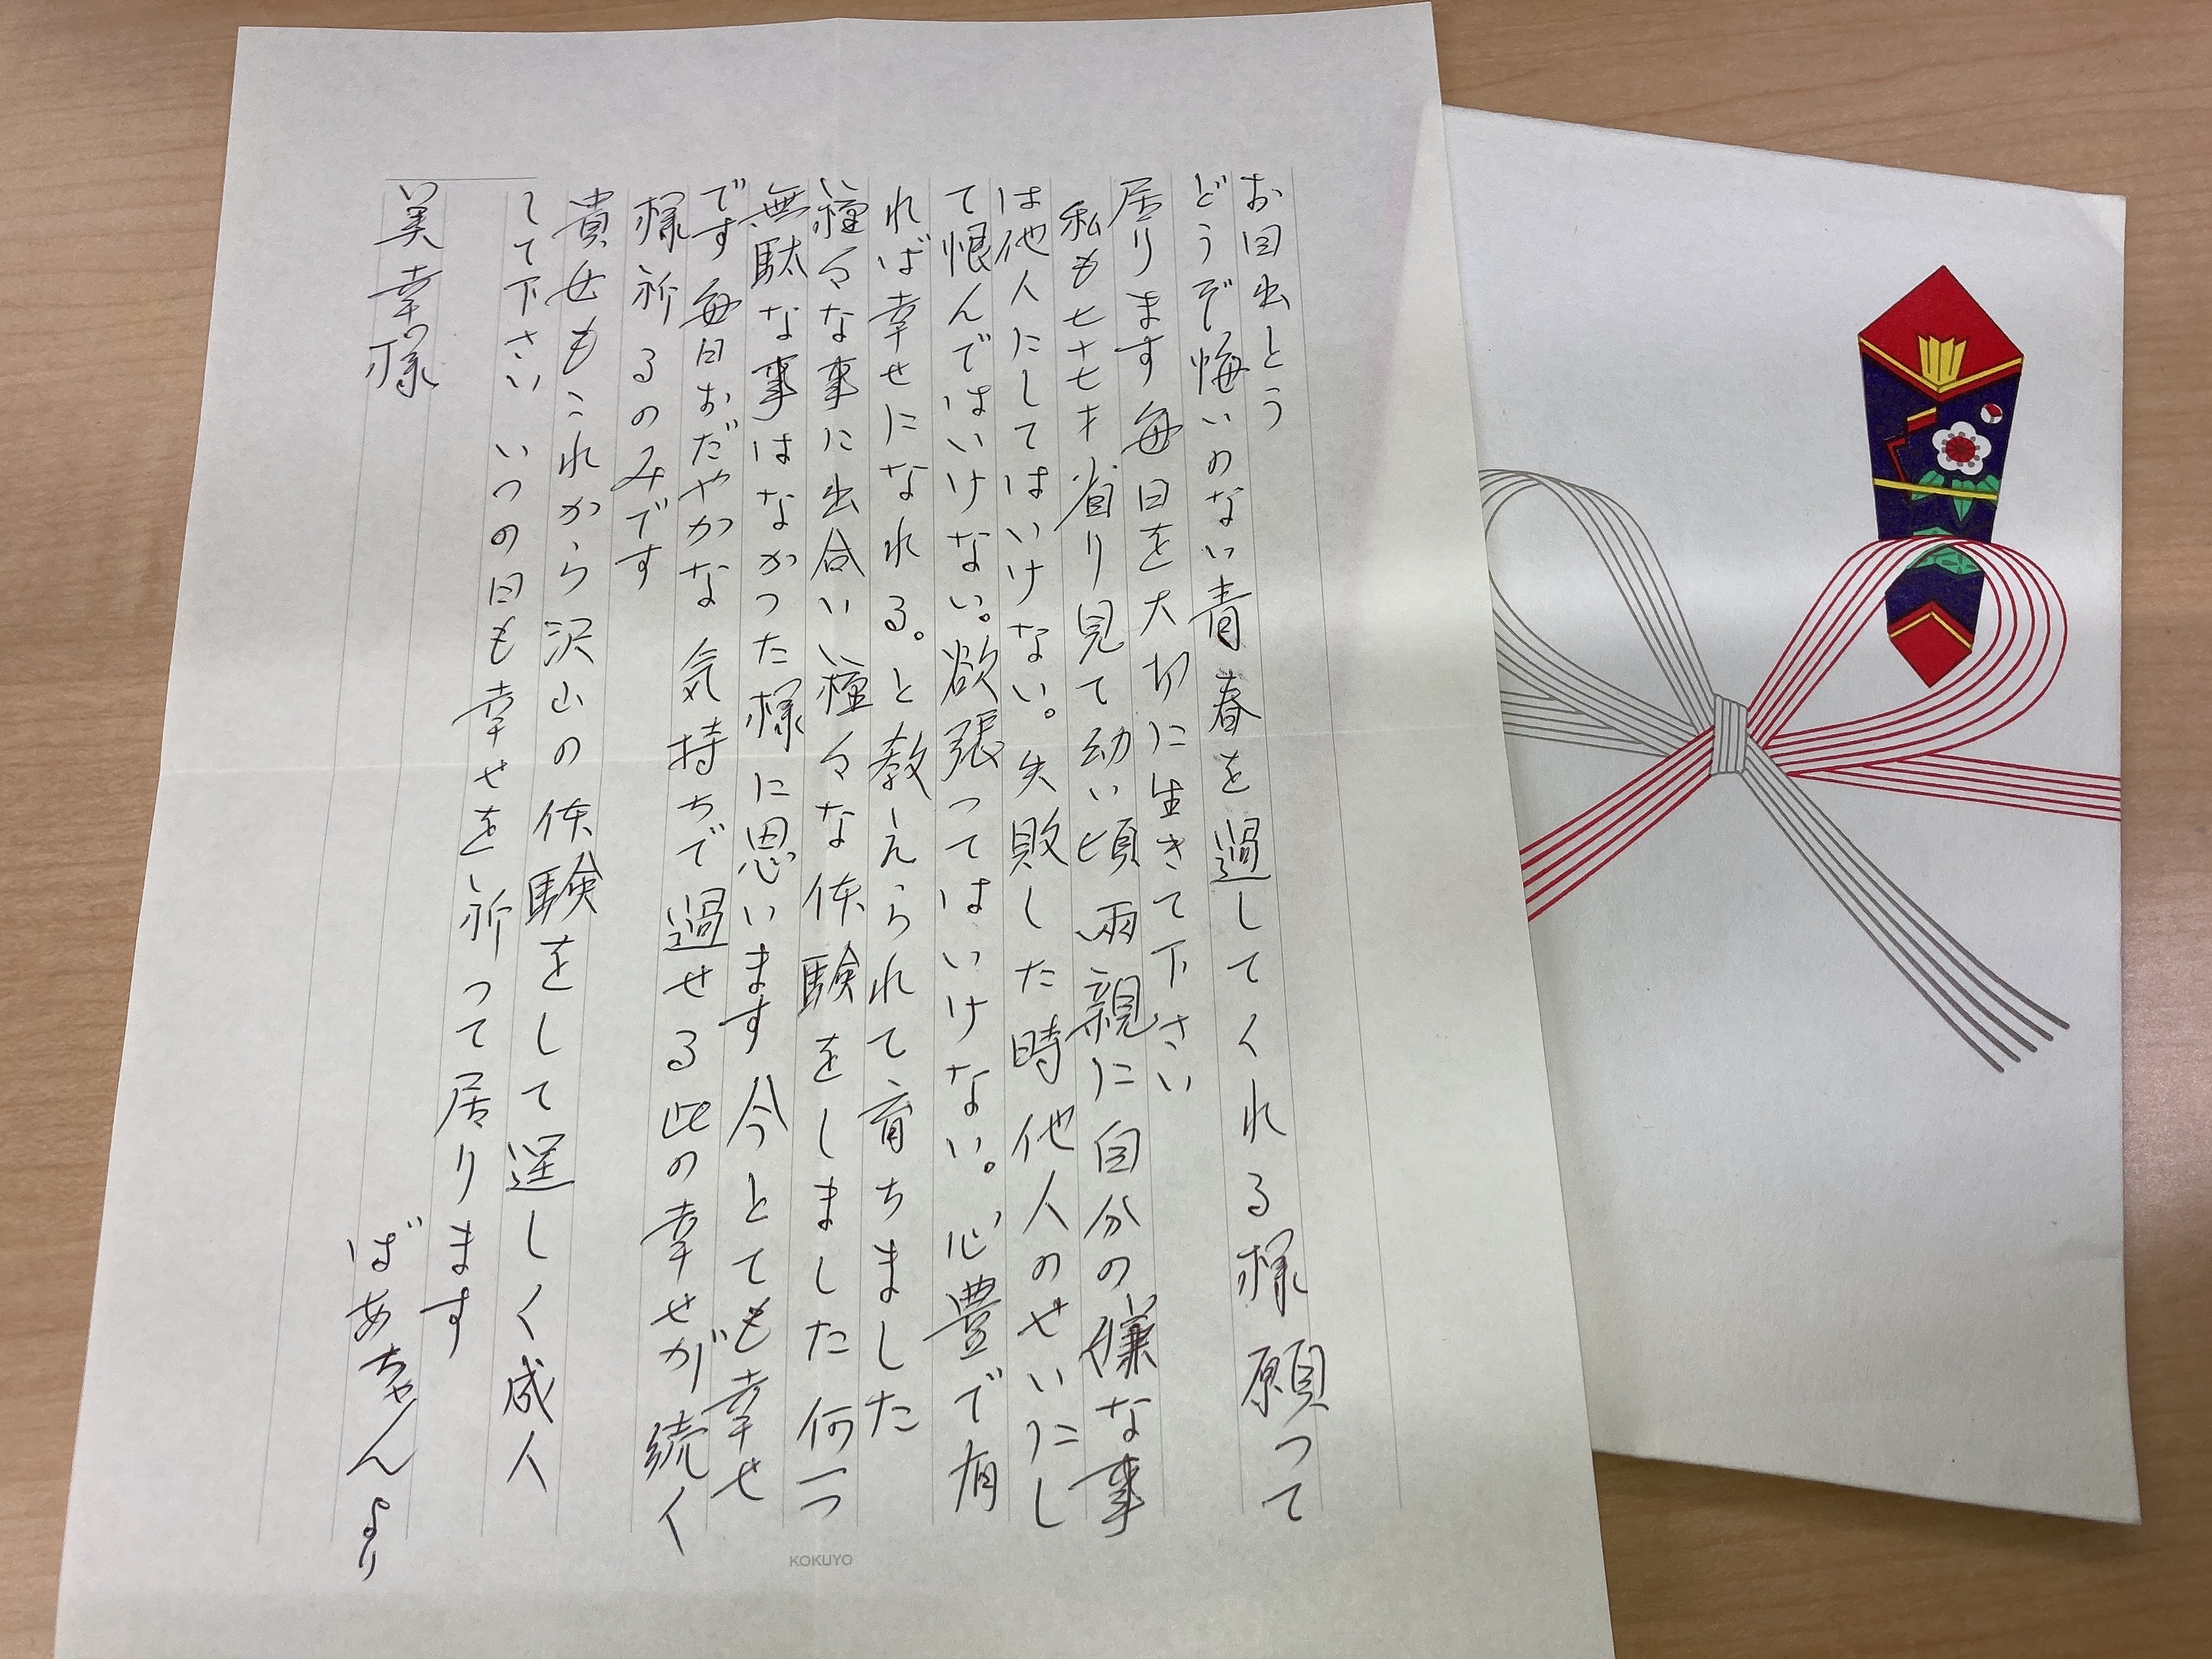 お目出とう
どうぞ悔いのない青春を過してくれる様願って
居ります毎日を大切に生きて下さい
私も七十七才省り見て幼い頃両親に自分の嫌な事
は他人にしてはいけない。失敗した時他人のせいにし
て恨んではいけない。欲張ってはいけない。心豊で有
れば幸せになれる。と教えられて育ちました
種々な事に出合い種々な体験をしました何一つ
無駄な事はなかった様に思います今とても幸せ
です毎日おだやかな気持ちで過せる此の幸せが続く
様祈るのみです
貴女もこれから沢山の体験をして逞しく成人
して下さいいつの日も幸せを祈って居ります
ばあちゃんより
美幸様
KOKUYO